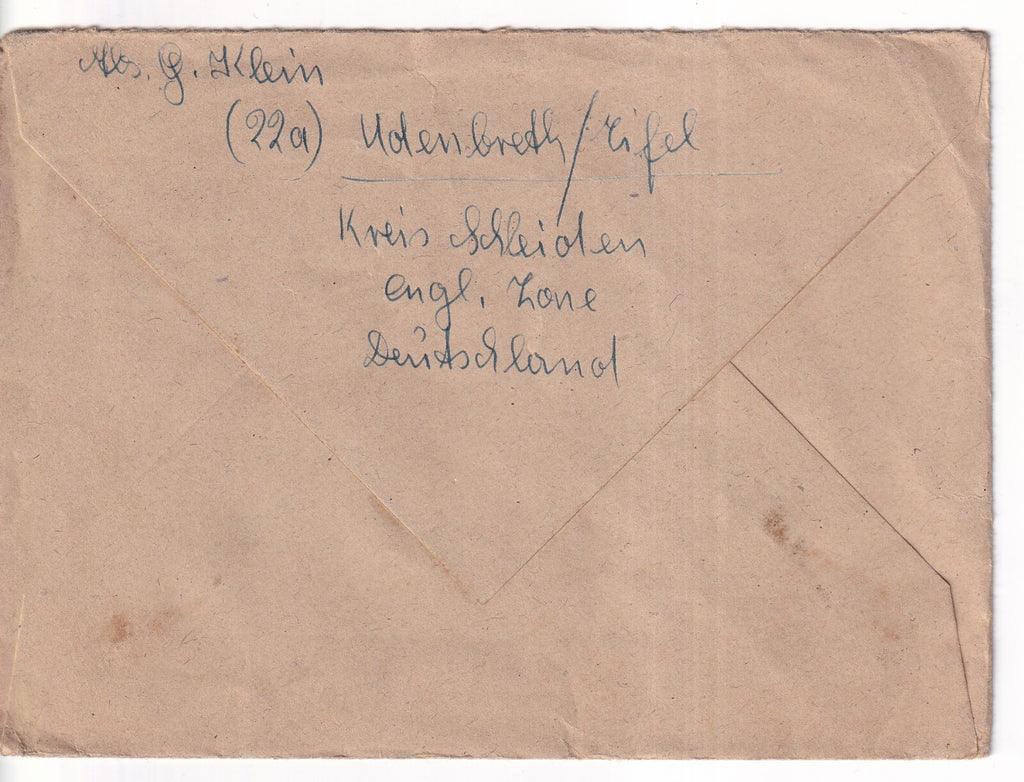 Abs. G. Klein
(22a) Udenbreth/Eifel
Kreis Schleiden
engl. Zone
Deutschland